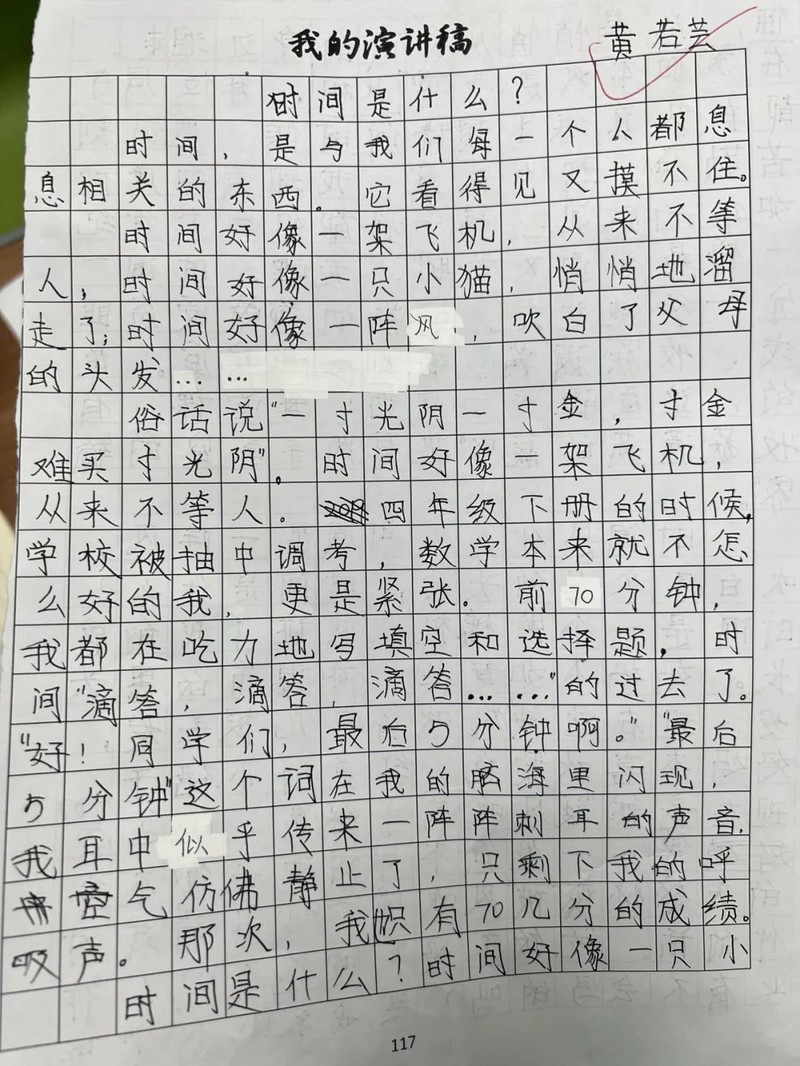 我的演讲稿
黄若芸
时间是什么？
时间，是与我们每一个人都息
息相关的东西。它看得见又摸不住。
时间好像一架飞机，从来不等
人，时间好像一只小猫，悄悄地溜
走了；时间好像一阵风，吹白了父母
的头发……
俗话说“一寸光阴一寸金，寸金
难买寸光阴”。时间好像一架飞机，
从来不等人。四年级下册的时候，
学校被抽中调考，数学本来就不怎
么好的我，更是紧张。前70分钟，
我都在吃力地写填空和选择题，时
间“滴答，滴答，滴答……”的过去了。
“好！同学们，最后5分钟啊。”“最后
5分钟”这个词在我的脑海里闪现，
我耳中似乎传来一阵阵刺耳的声音，
空气仿佛静止了，只剩下我的呼
吸声。那次，我只有70几分的成绩。
时间是什么？时间好像一只小
117